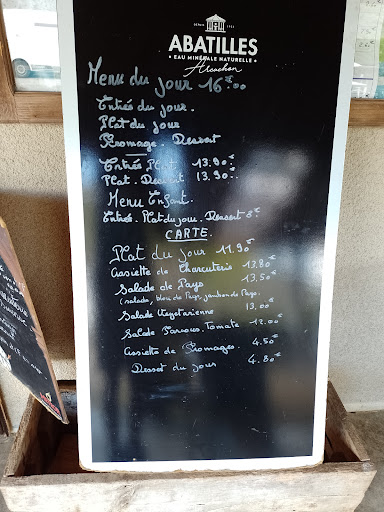 DEPUIS 1925
ABATILLES
• EAU MINÉRALE NATURELLE •
Arcachon
Menu du jour 16€.00
Entrée du jour.
Plat du jour
Fromage. Dessert
Entrée Plat 13.90€
Plat. Dessert 13.90.
Menu Enfant.
Entrée. Plat du jour. Dessert 8€
CARTE.
Plat du jour 11.90€
Assiette de Charcuterie 13.80€
Salade de Pays 13.50€
(salade, bleu de Pays, jambon de Pays.
Salade Végétarienne 13.00
Salade Tomate 12.00€
Assiette de Fromages. 4.50€
Dessert du jour 4.80€